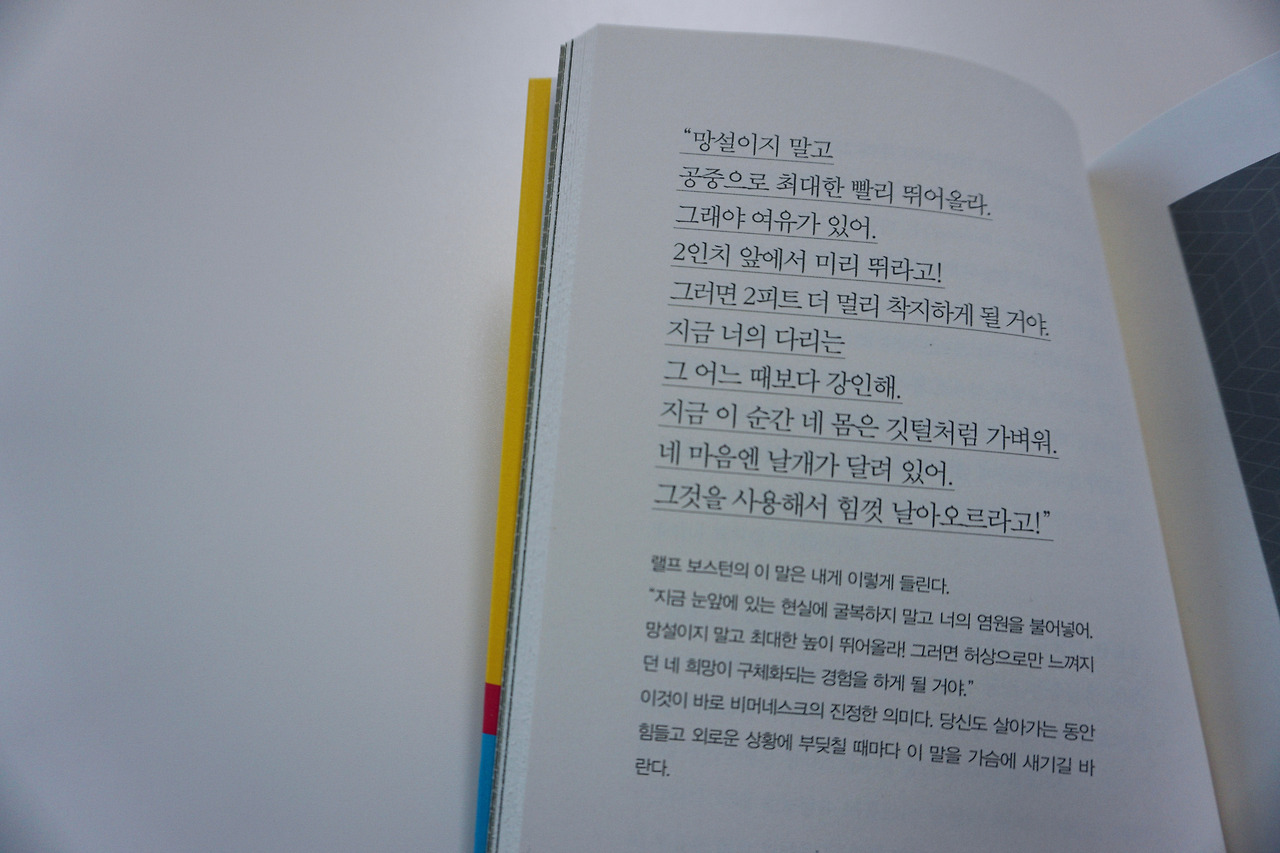 “망설이지 말고
공중으로 최대한 빨리 뛰어올라.
그래야 여유가 있어.
2인치 앞에서 미리 뛰라고!
그러면 2피트 더 멀리 착지하게 될 거야.
지금 너의 다리는
그 어느 때보다 강인해.
지금 이 순간 네 몸은 깃털처럼 가벼워.
네 마음엔 날개가 달려 있어.
그것을 사용해서 힘껏 날아오르라고!”
랠프 보스턴의 이 말은 내게 이렇게 들린다.
“지금 눈앞에 있는 현실에 굴복하지 말고 너의 염원을 불어넣어.
망설이지 말고 최대한 높이 뛰어올라! 그러면 허상으로만 느껴지
던 네 희망이 구체화되는 경험을 하게 될 거야.”
이것이 바로 비머네스크의 진정한 의미다. 당신도 살아가는 동안
힘들고 외로운 상황에 부딪칠 때마다 이 말을 가슴에 새기길 바
란다.